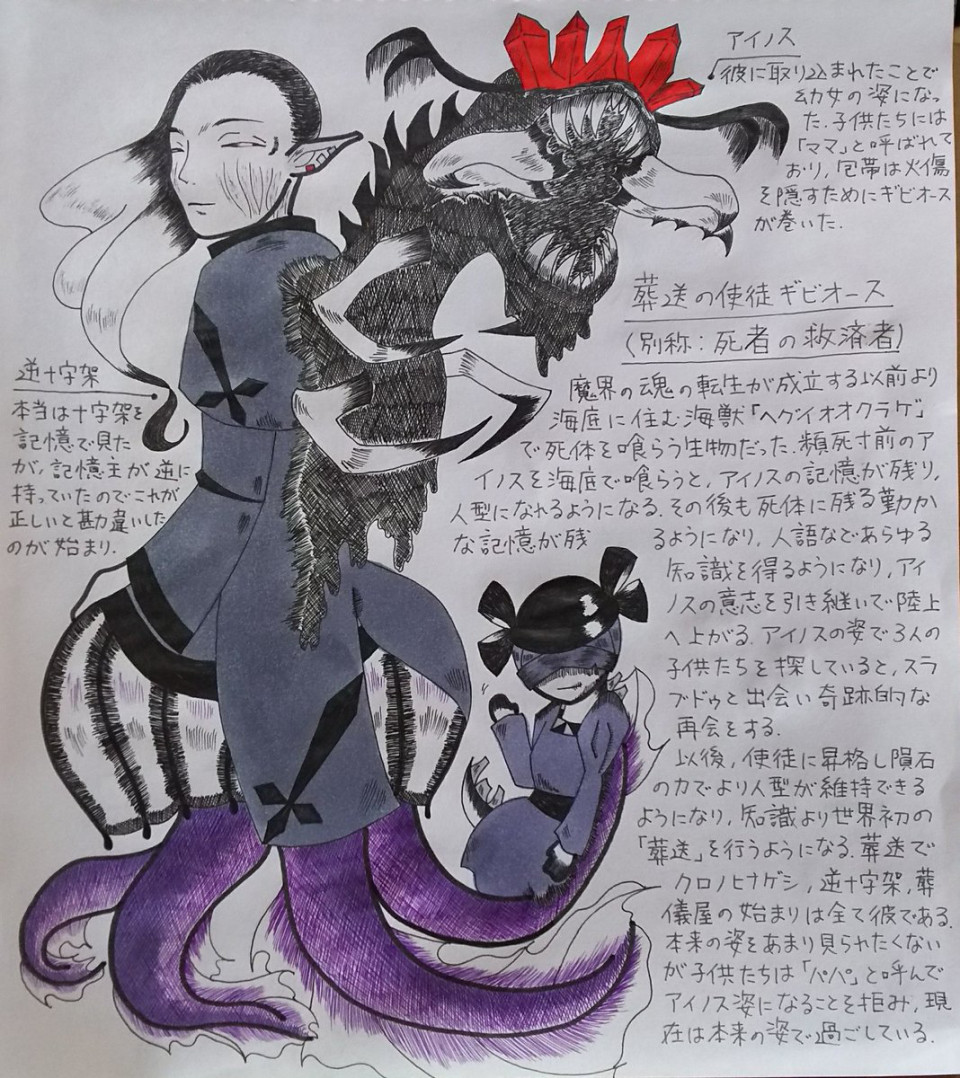 アイノス
彼に取り込まれたことで
幼女の姿になっ
た.子供たちには
「ママ」と呼ばれて
おり,包帯は火傷
を隠すためにギビオース
が巻いた.
葬送の使徒ギビオース
(別称:死者の救済者)
魔界の魂の転生が成立する以前より
海底に住む海獣「ヘグイオオクラゲ」
で死体を喰らう生物だった.頻死寸前のア
イノスを海底で喰らうと,アイノスの記憶が残り,
人型になれるようになる.その後も死体に残る僅か
な記憶が残るようになり,人語などあらゆる
知識を得るようになり,アイ
ノスの意志を引き継いで陸上
へ上がる.アイノスの姿で3人の
子供たちを探していると,スラ
ブドゥと出会い奇跡的な
再会をする.
以後,使徒に昇格し隕石
の力でより人型が維持できる
ようになり,知識より世界初の
「葬送」を行うようになる.葬送で
クロノヒナゲシ,逆十字架,葬
儀屋の始まりは全て彼である.
本来の姿をあまり見られたくない
が子供たちは「パパ」と呼んで
アイノス姿になることを拒み,現
在は本来の姿で過ごしている.
逆十字架
本当は十字架を
記憶で見た
が,記憶主が逆に
持っていたのでこれが
正しいと勘違いした
のが始まり.